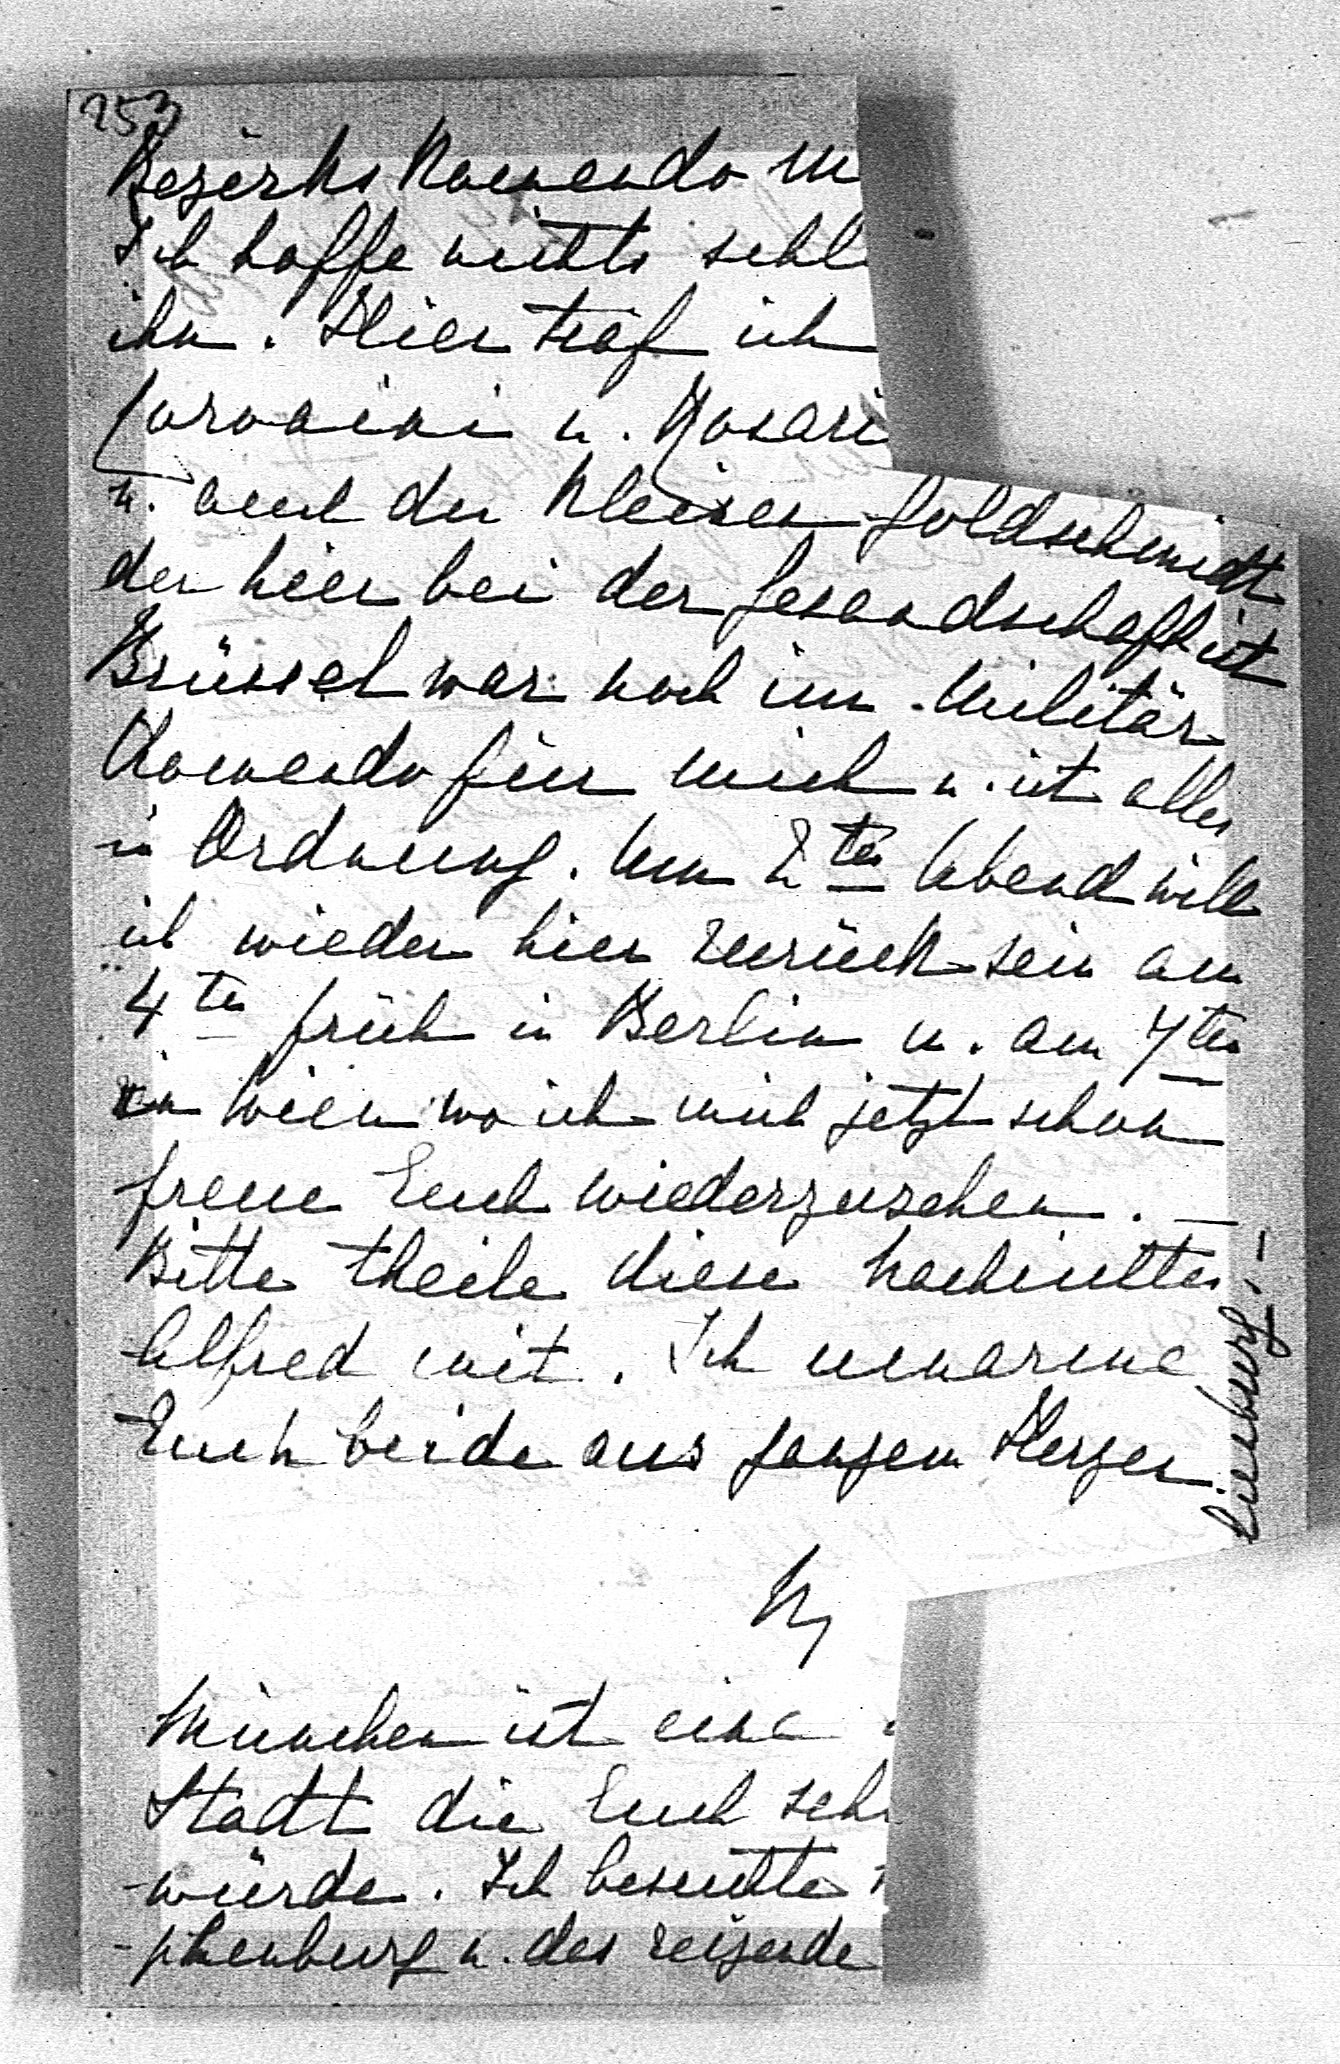 253
Bezirks Kommando M
Ich hoffe nichts schl
ihn. Hier traf ich
u. Rosari
u. auch den kleinen Goldschmidt
der hier bei der Gesandschaft ist
Brüssel war noch im Militär
Kommando für mich u. ist alles
in Ordnung. Am 2ten Abend will
ich wieder hier zurück sein am
4ten früh in Berlin u. am 7ten
in Wien wo ich mich jetzt schon
freue Euch wiederzusehen. —
Bitte theile diese Nachrichten
Alfred mit. Ich umarme
Euch beide aus ganzem Herzen.
München ist eine
Stadt die Euch seh
würde. Ich besuchte
phenburg u. das reizende